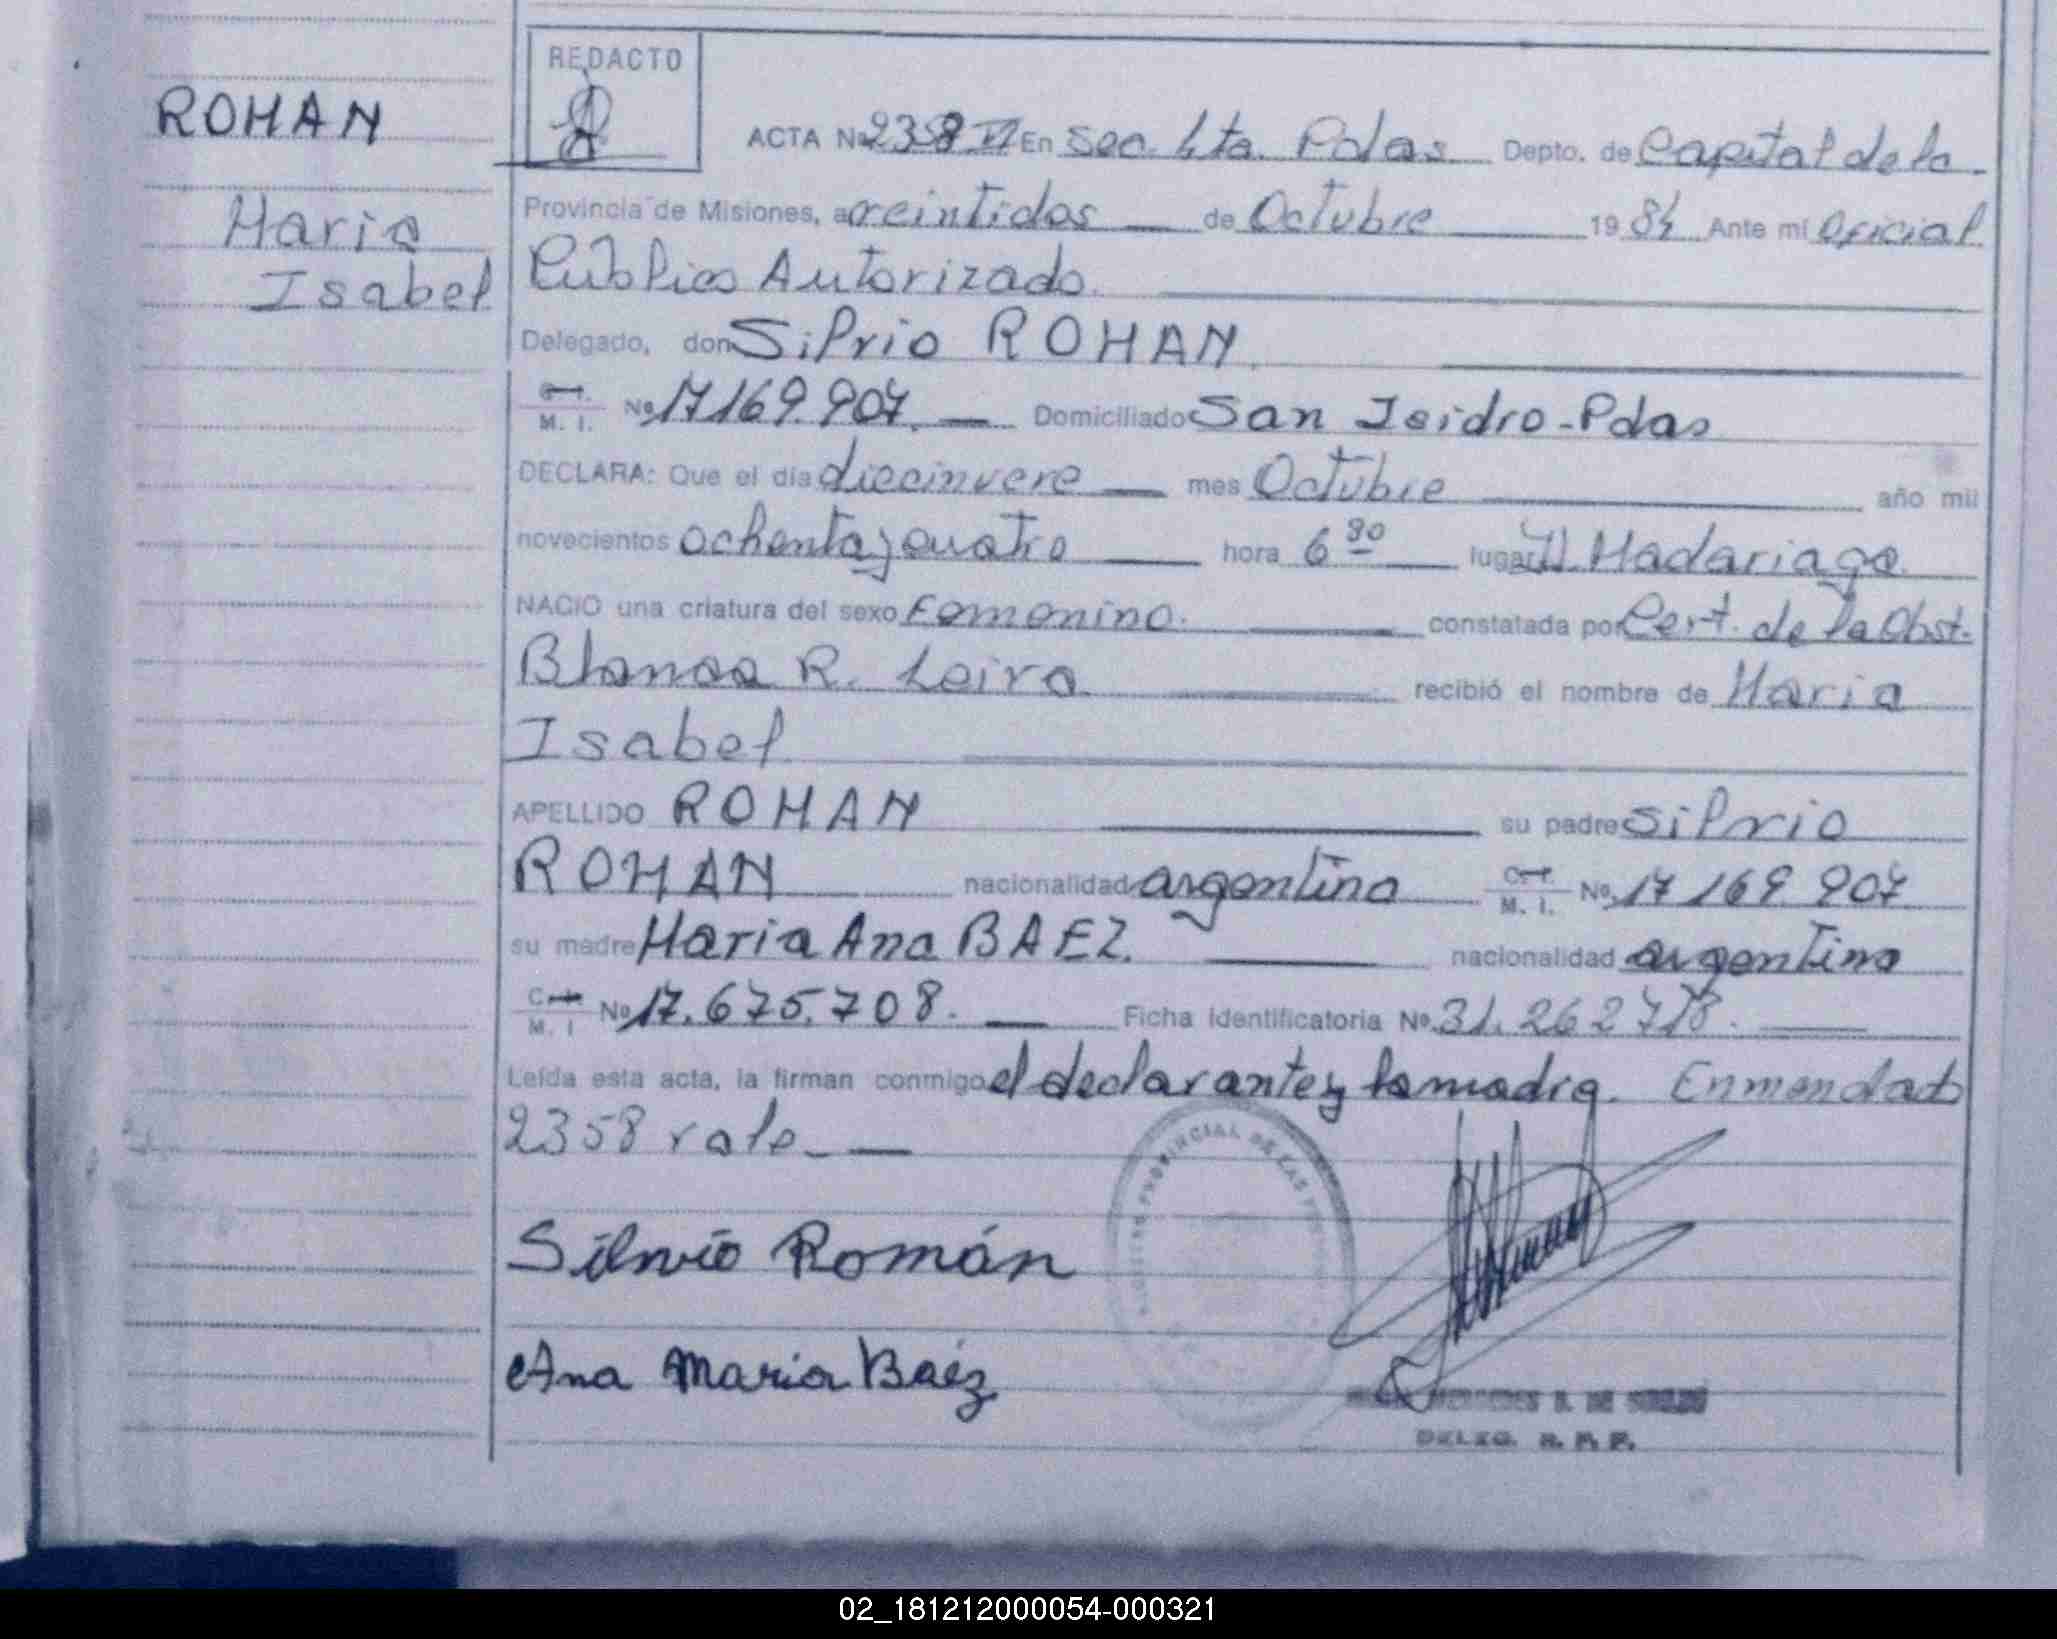 REDACTO
ROMAN
Maria
Isabel
ACTA Nº 2358 VI En Sec. 4ta. Pdas. Depto. de Capital de la
Provincia de Misiones, a veintidos de Octubre 1984 Ante mí Oficial
Público Autorizado.
Delegado, don Silvio ROMAN.
M. I. Nº 17169.907. Domiciliado San Isidro - Pdas
DECLARA: Que el día diecinueve mes Octubre año mil
novecientos ochenta y cuatro hora 6 30 lugar H. Madariaga.
NACIO una criatura del sexo Femenino. constatada por Cert. de la Obst.
Blanca R. Leiva recibió el nombre de Maria
Isabel
APELLIDO ROMAN su padre Silvio
ROMAN nacionalidad argentino C. I. M. I. Nº 17 169 907
su madre Maria Ana BAEZ. nacionalidad argentina
C. I. M. I Nº 17.675.708. Ficha identificatoria Nº 31.262 718.
Leída esta acta, la firman conmigo el declarante y la madre. Enmendado
2358 vale
Silvio Román
Ana Maria Baéz
DELEG. R. P. P.
02_181212000054-000321